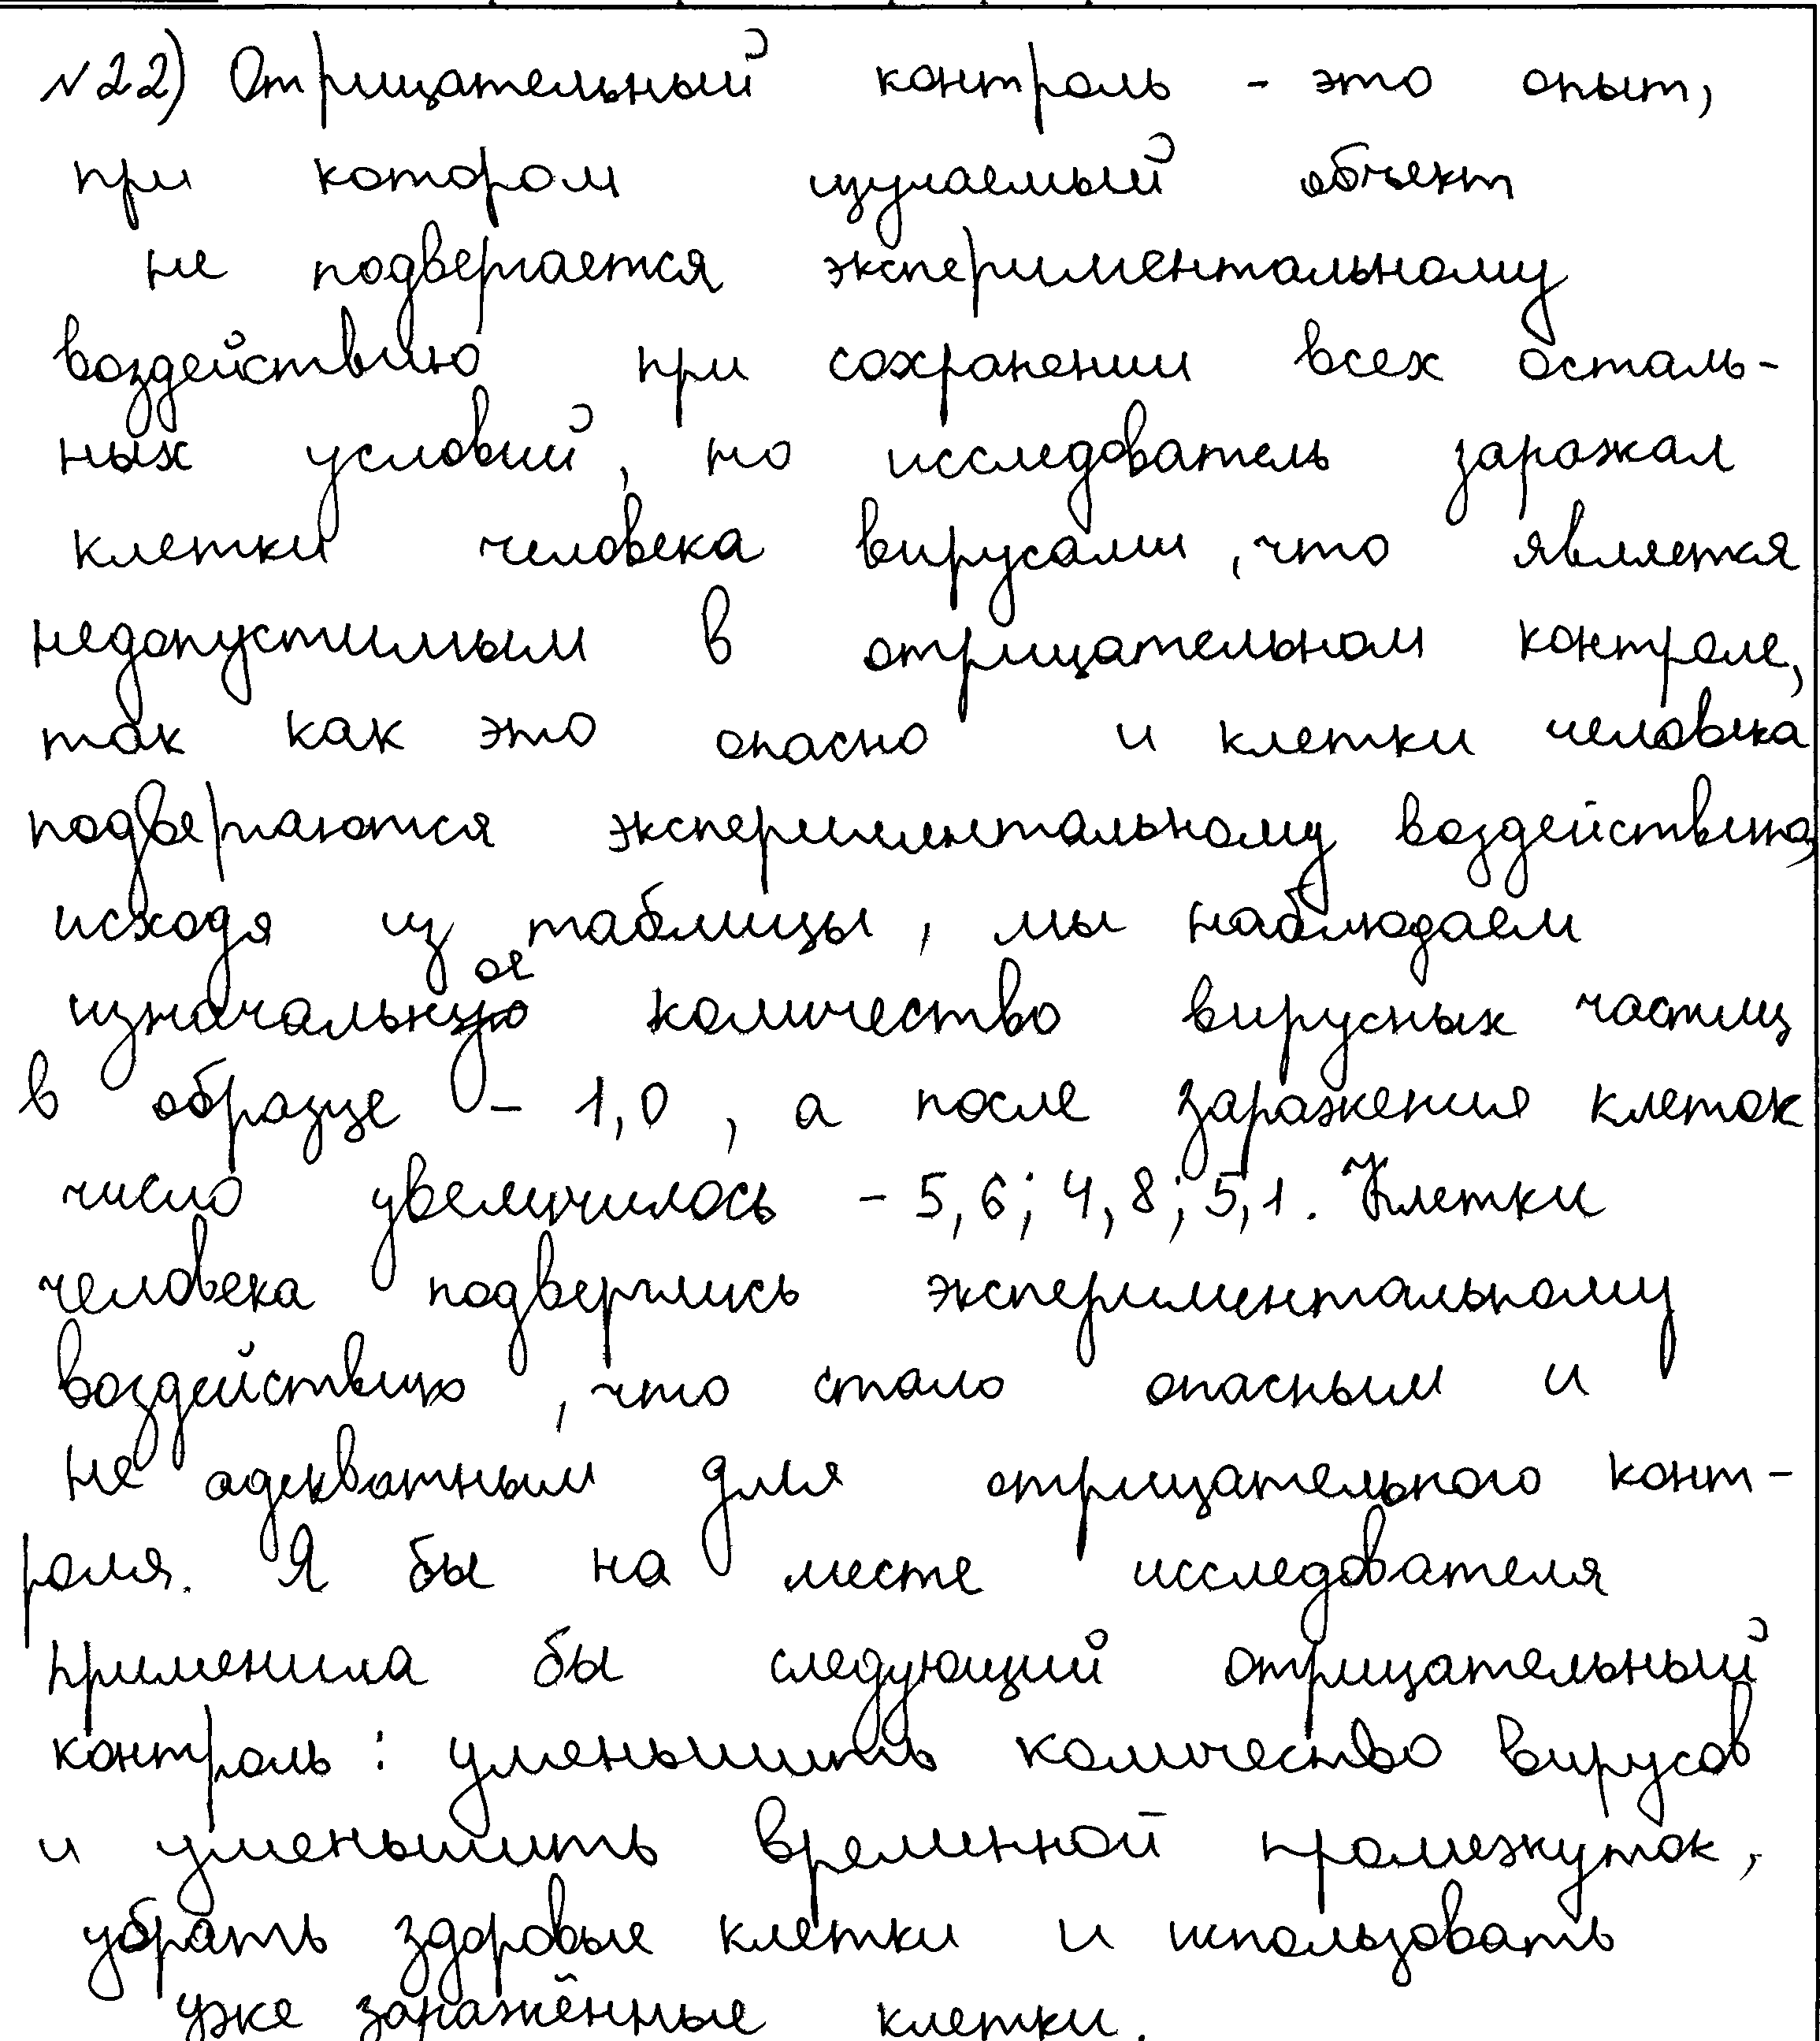 №22) Отрицательный контроль - это опыт,
при котором изучаемый объект
не подвергается экспериментальному
воздействию при сохранении всех осталь-
ных условий, но исследователь заражал
клетки человека вирусами, что является
недопустимым в отрицательном контроле,
так как это опасно и клетки человека
подвергаются экспериментальному воздействию,
исходя из таблицы, мы наблюдаем
изначальное количество вирусных частиц
в образце - 1,0, а после заражения клеток
число увеличилось - 5,6; 4,8; 5,1. Клетки
человека подверглись экспериментальному
воздействию, что стало опасным и
не адекватным для отрицательного конт-
роля. Я бы на месте исследователя
применила бы следующий отрицательный
контроль: уменьшить количество вирусов
и уменьшить временной промежуток,
убрать здоровые клетки и использовать
уже заражённые клетки.